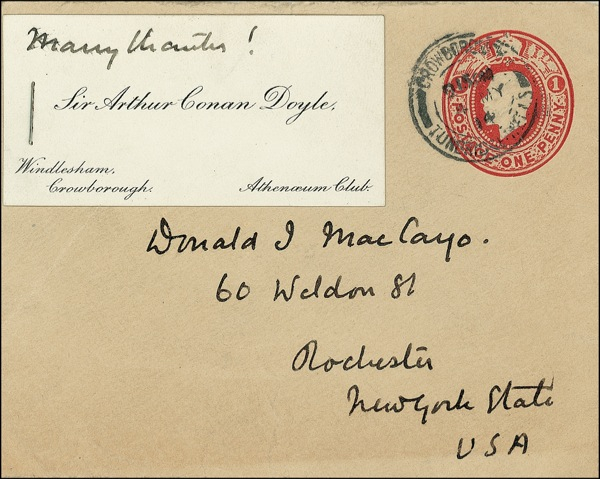 Many thanks!
Sir Arthur Conan Doyle.
Windlesham.
Crowborough.
Athenæum Club.
CROWBOROUGH
MY
14
TUNB WELLS
POS
ONE PENNY
1
Donald I MacCayo.
60 Weldon St
Rochester
New York State
USA